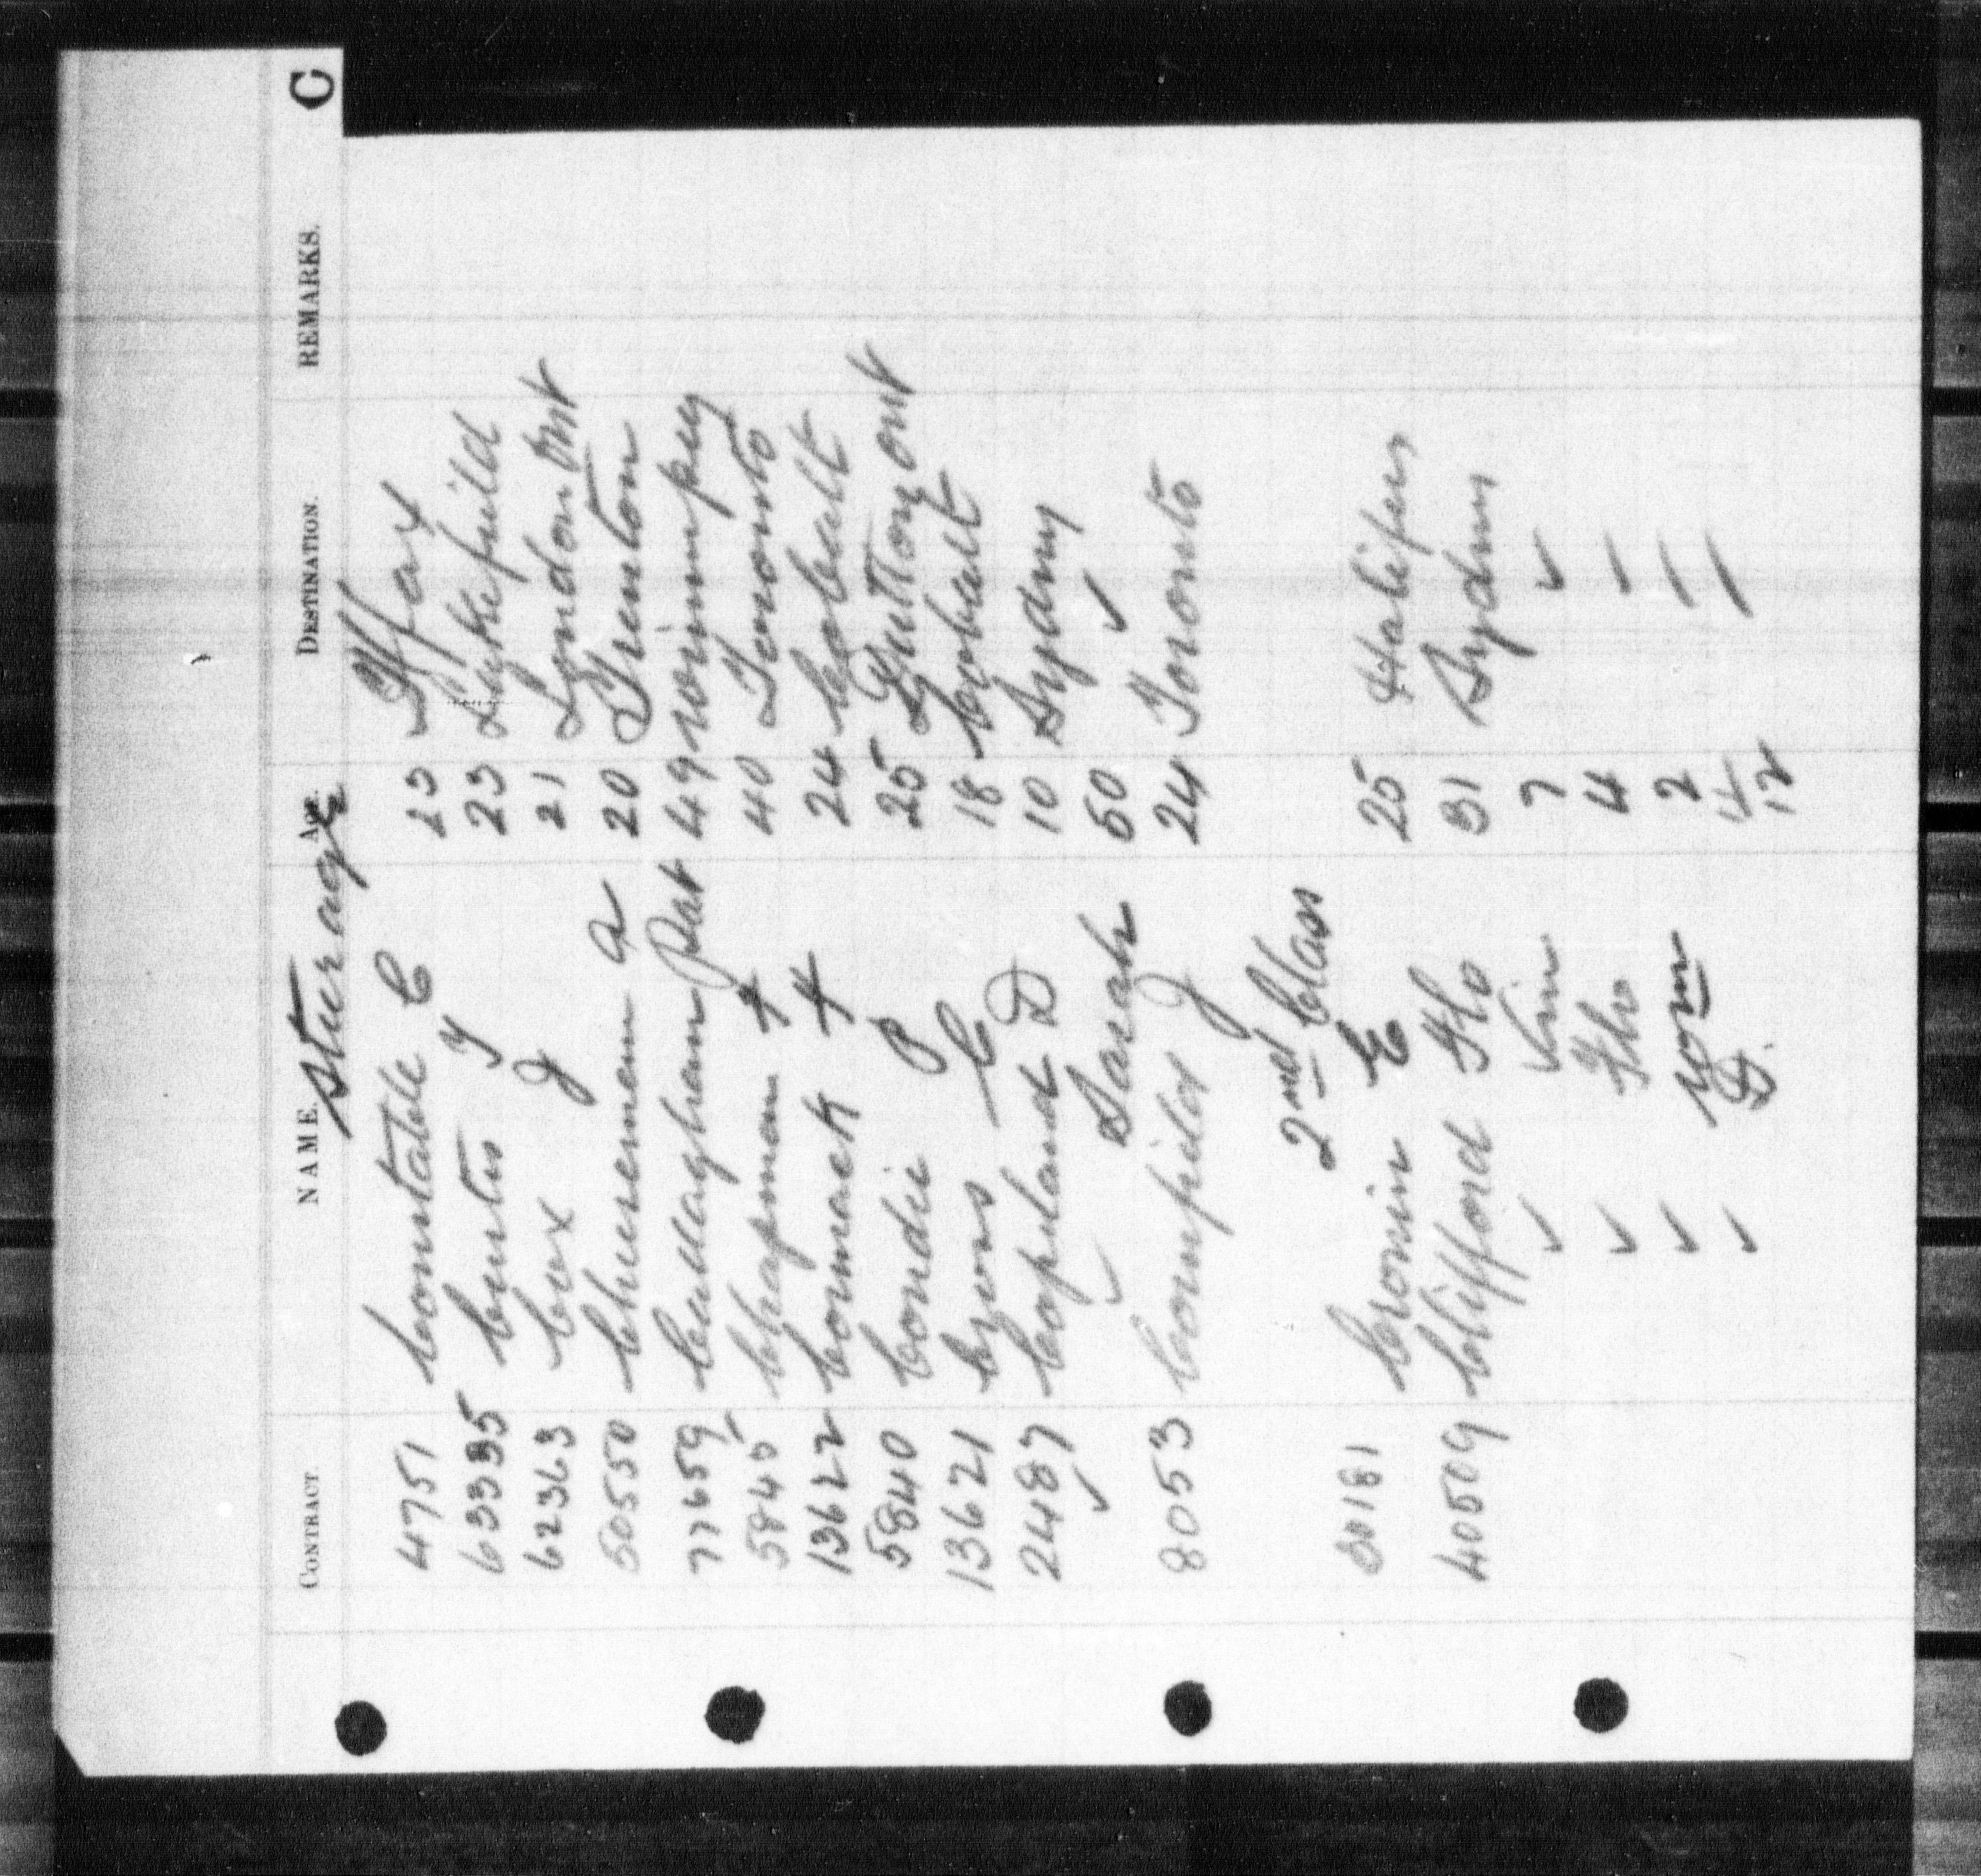 C
CONTRACT. NAME. AGE. DESTINATION. REMARKS.
Steerage
4751 Constable C 23
63335 Curtis Y 23 Lakefield
62363 Cox J 21 London Ont
50550 Chueseman A 20 Trenton
77659 Callaghan Pat 49 Winnipeg
5845 Chapman F 40 Toronto
13622 Cormack F 24 Cobalt
5840 Condie P 25 Ont
13621 C 18 Cobalt
24487 Copland D 10 Sydny
✓ ✓ Sarah 50 ✓
8053 Cornfield J 24 Toronto
2nd Class
30181 Cronin E 25 Halifax
40509 Clifford Tho 31 Sydny
✓ 7 ✓
✓ Tho 4
✓ Wm 2
✓ D.
12